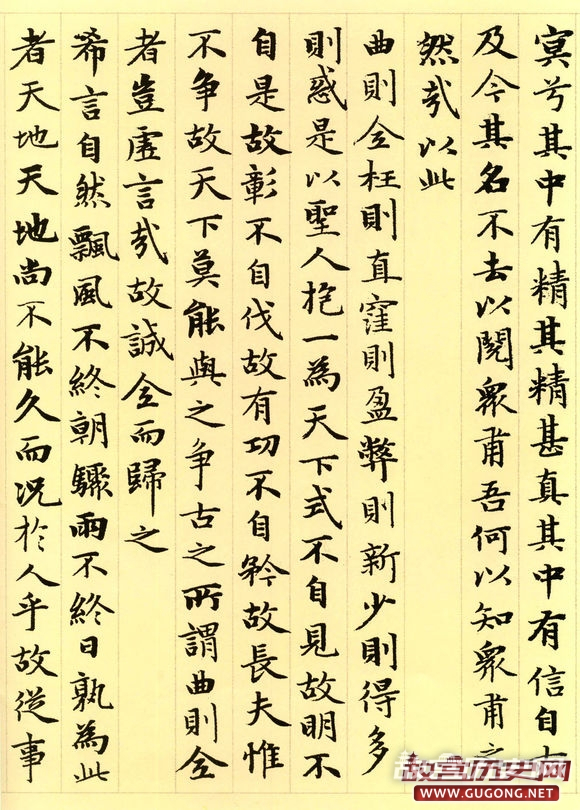 冥兮其中有精其精甚真其中有信自
及今其名不去以閱衆甫吾何以知衆甫之
然哉以此
曲則全枉則直窪則盈弊則新少則得多
則惑是以聖人抱一為天下式不自見故明不
自是故彰不自伐故有功不自矜故長夫惟
不争故天下莫能與之争古之所謂曲則全
者豈虛言哉故誠全而歸之
希言自然飄風不終朝驟雨不終日孰為此
者天地天地尚不能久而况於人乎故從事
故宫历史网
WWW.GUGONG.NET